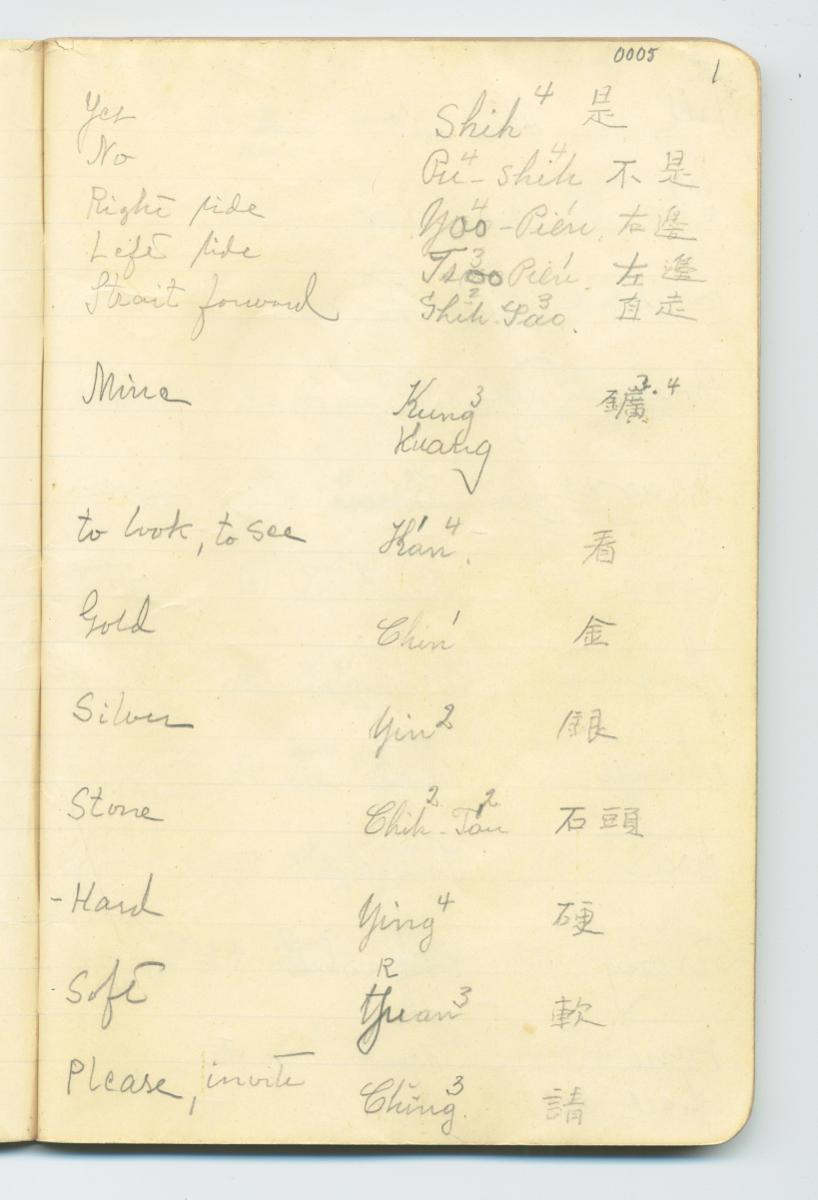 0005 1
Yes Shih⁴ 是
No Pu⁴-shih⁴ 不是
Right side Yoo⁴-Pien¹. 右邊
Left side Tsoo³ Pien¹. 左邊
Strait forward Chih² 直走
Mine Kung³ 鑛³·⁴
Kuang
to look, to see K'an⁴. 看
Gold Chin¹ 金
Silver Yin² 銀
Stone Chih²-T'ou² 石頭
-Hard Ying⁴ 硬
R
Soft Yuan³ 軟
Please, invite Ching³. 請